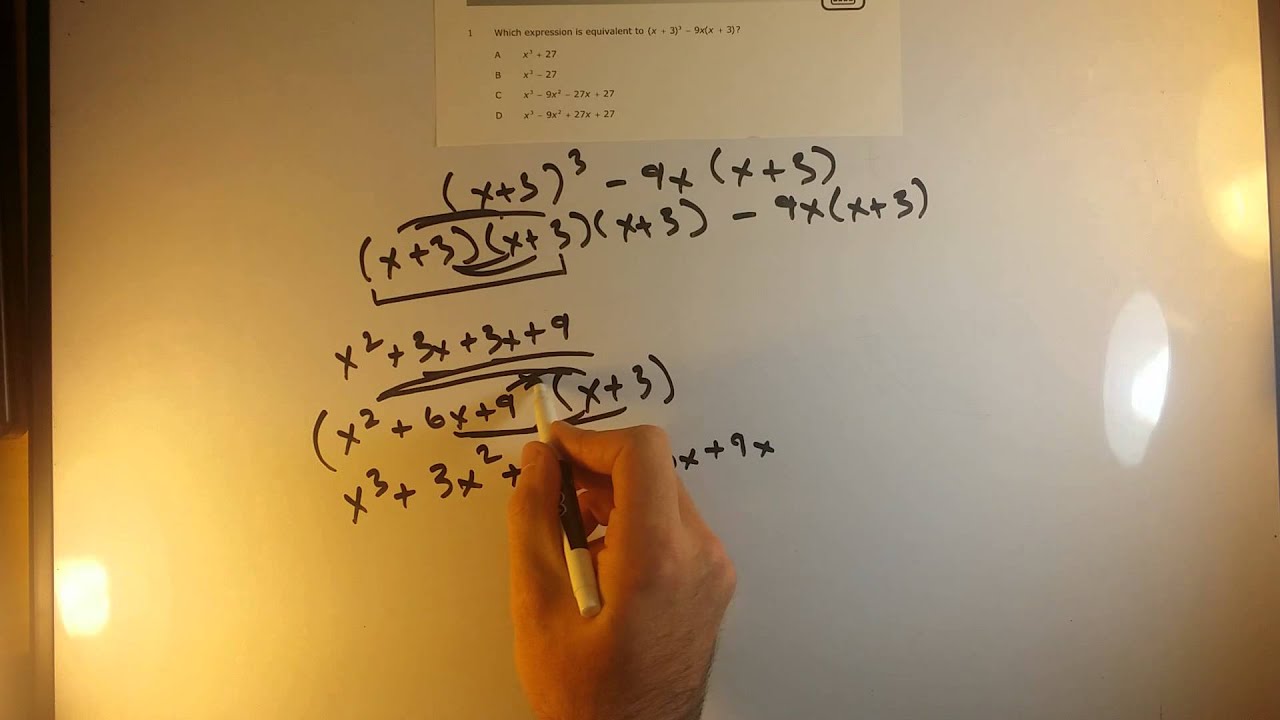 1 Which expression is equivalent to (x + 3)³ – 9x(x + 3)?
A x³ + 27
B x³ – 27
C x³ – 9x² – 27x + 27
D x³ – 9x² + 27x + 27
(x+3)³ – 9x(x+3)
(x+3)(x+3)(x+3) – 9x(x+3)
x²+3x+3x+9
(x²+6x+9 (x+3)
x³+3x²+ x+9x